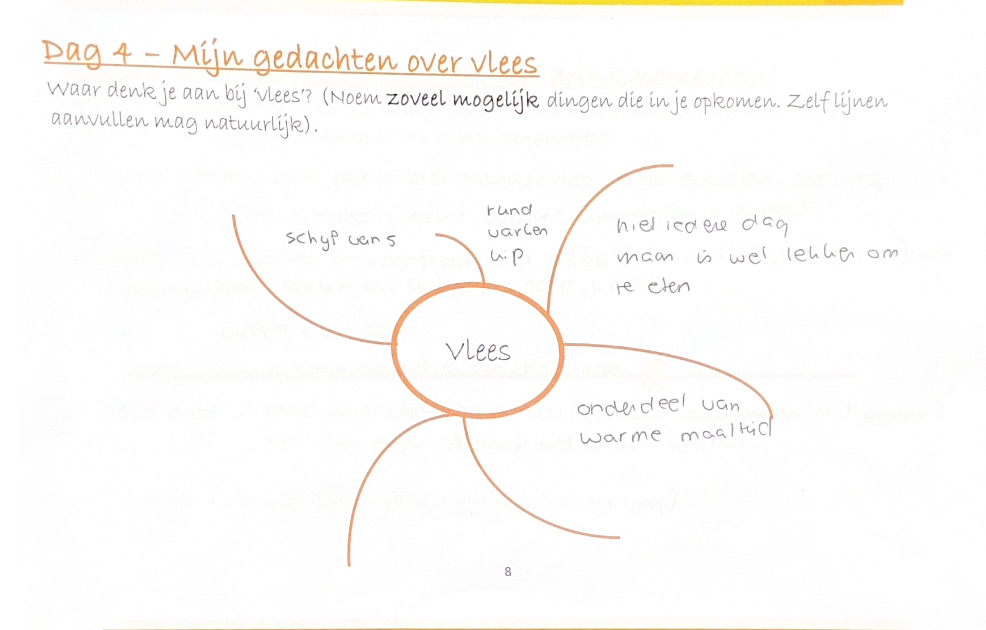 Dag 4 – Mijn gedachten over vlees
Waar denk je aan bij 'vlees'? (Noem zoveel mogelijk dingen die in je opkomen. Zelf lijnen
aanvullen mag natuurlijk).
schijf van 5
rund
varken
kip
niet iedere dag
maar is wel lekker om
te eten
Vlees
onderdeel van
warme maaltijd
8